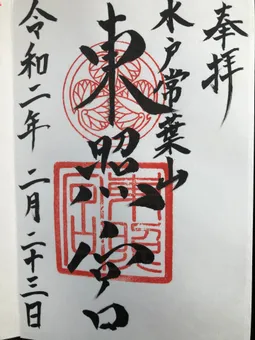 奉拝
水戸常葉山
東照宮
令和二年 二月 二十三日